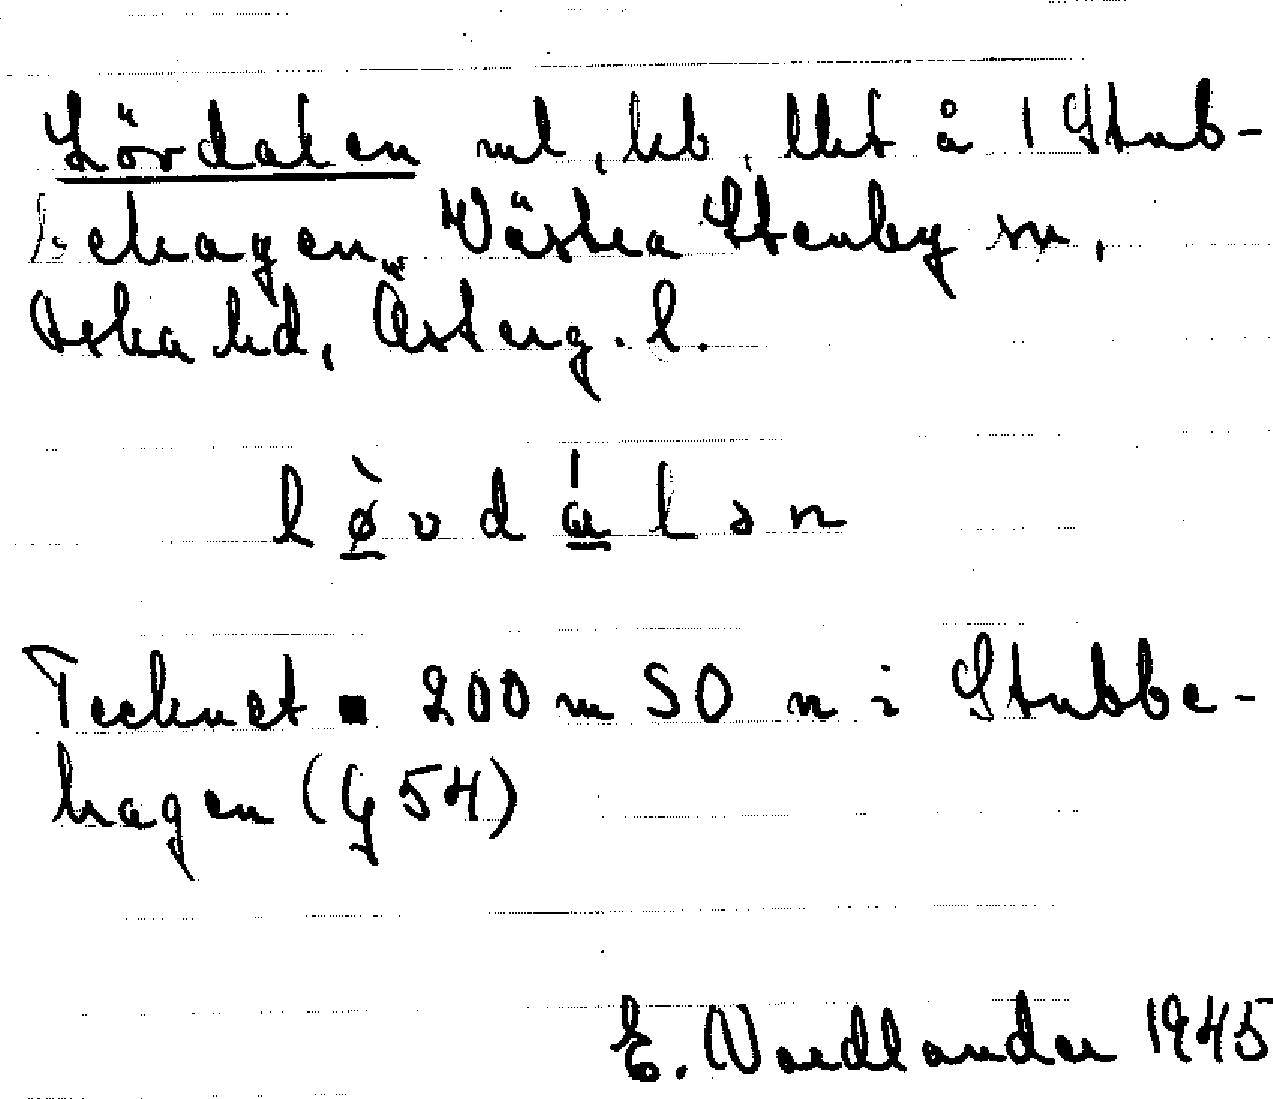 Lövdalen ml, hb, lht å 1 Stub-
behagen, Västra Stenby sn,
Aska hd, Österg. l.
l ø̀ v d á l ə n
Tecknet ▪ 200 m SO n i Stubbe-
hagen (G 54)
E. Nordlander 1945